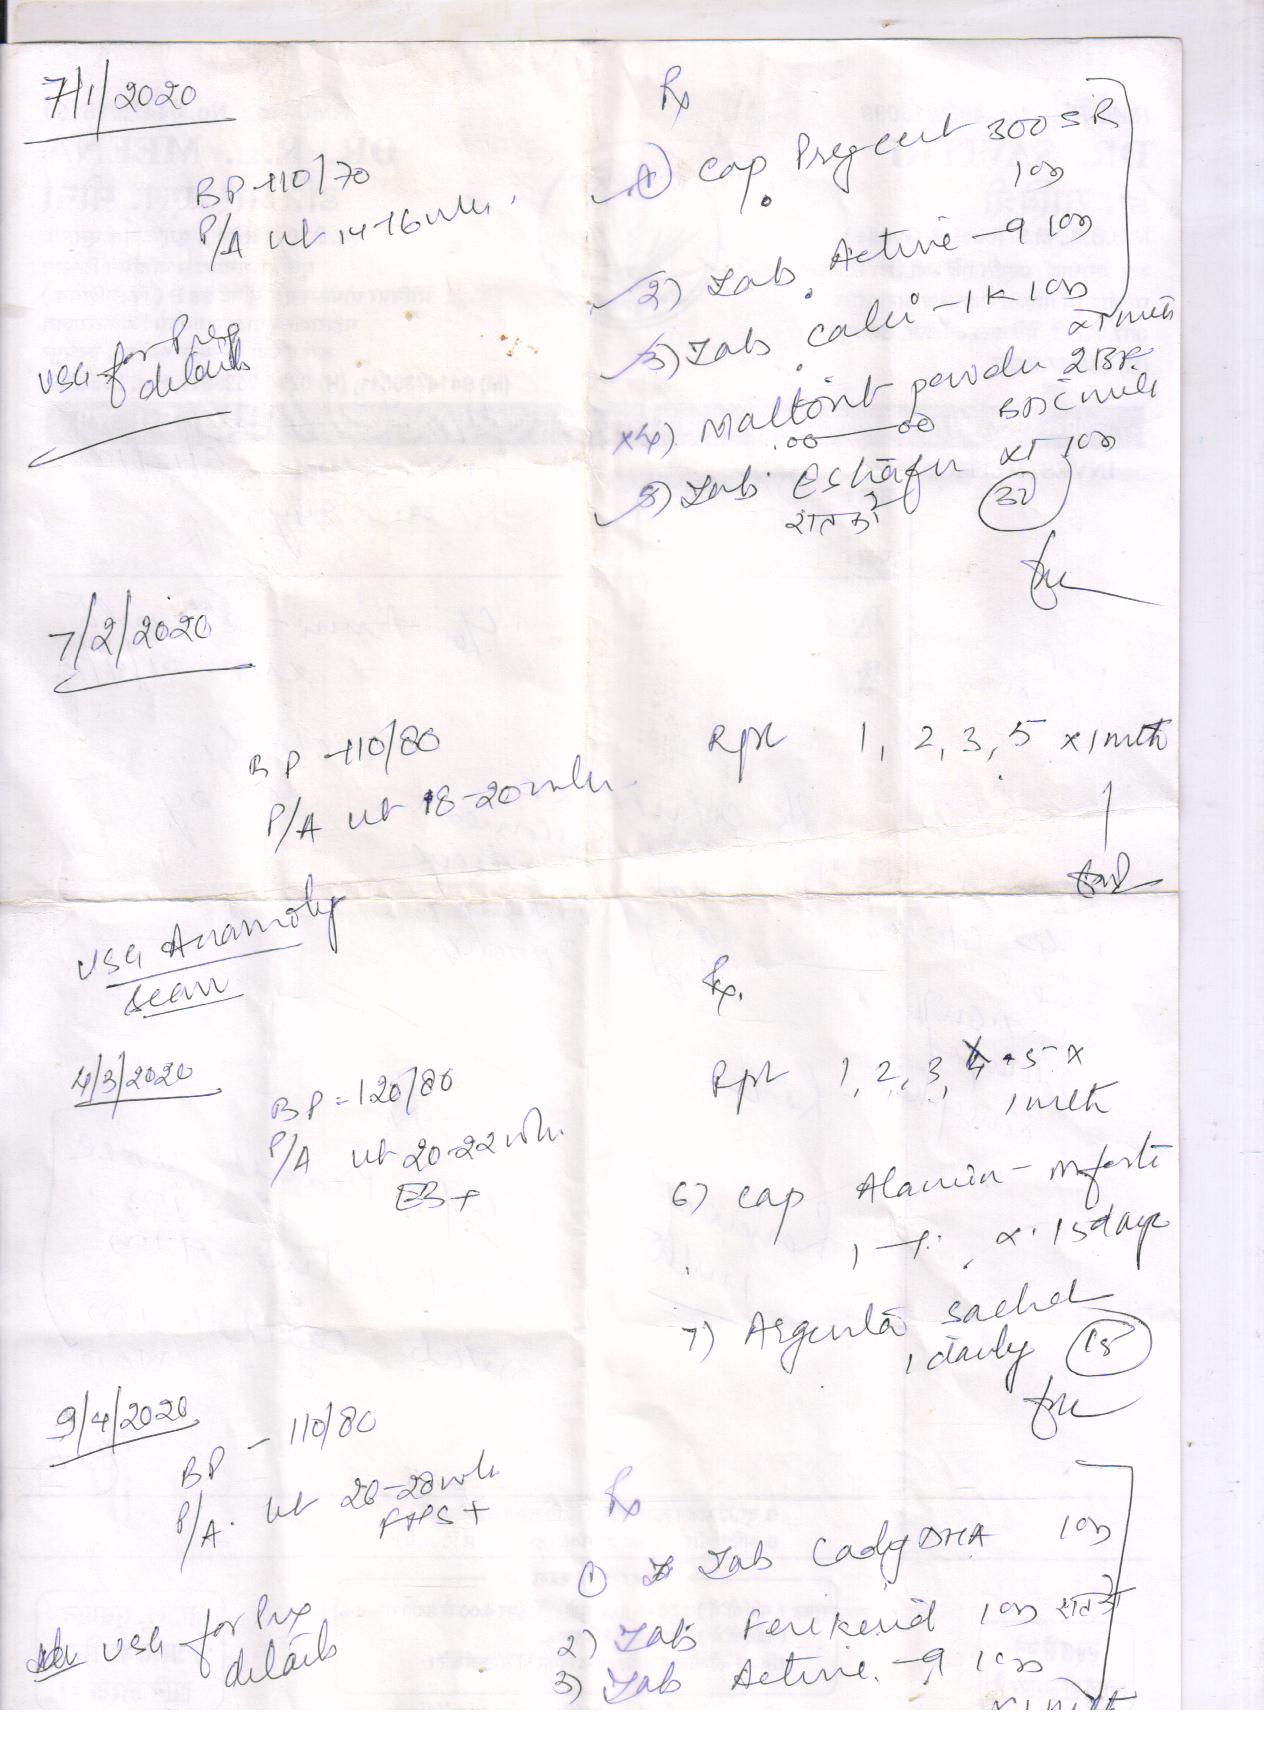 7/1/2020
BP-110/70
P/A ut 14-16 wks.
USG for Preg
details
Rx
1) Cap Pregcert 300 SR
1 OD
2) Tab Active-9 1 OD
3) Tab calci-1K 1 OD
x 1 mth
4) Maltonit powder 2 BP
BD c milk
5) Tab
x 1 OD
रात को
30
7/2/2020
BP-110/80
P/A ut 18-20 wks.
Rpt 1, 2, 3, 5 x 1 mth
USG Anamoly
scan
Rx.
4/3/2020
BP=120/80
P/A ut 20-22 wks.
Rpt 1, 2, 3, 4 + 5 x
1 mth
6) Cap Alamin-M forte
x 15 days
7) Argenta sachet
1 daily 15
9/4/2020
BP - 110/80
P/A. ut 26-28 wks
FHS +
USG for Prex
details
Rx
1) Tab Cady DHA 1 OD
2) Tab Ferikind 1 OD रात को
3) Tab Active-9 1 OD
x 1 mth